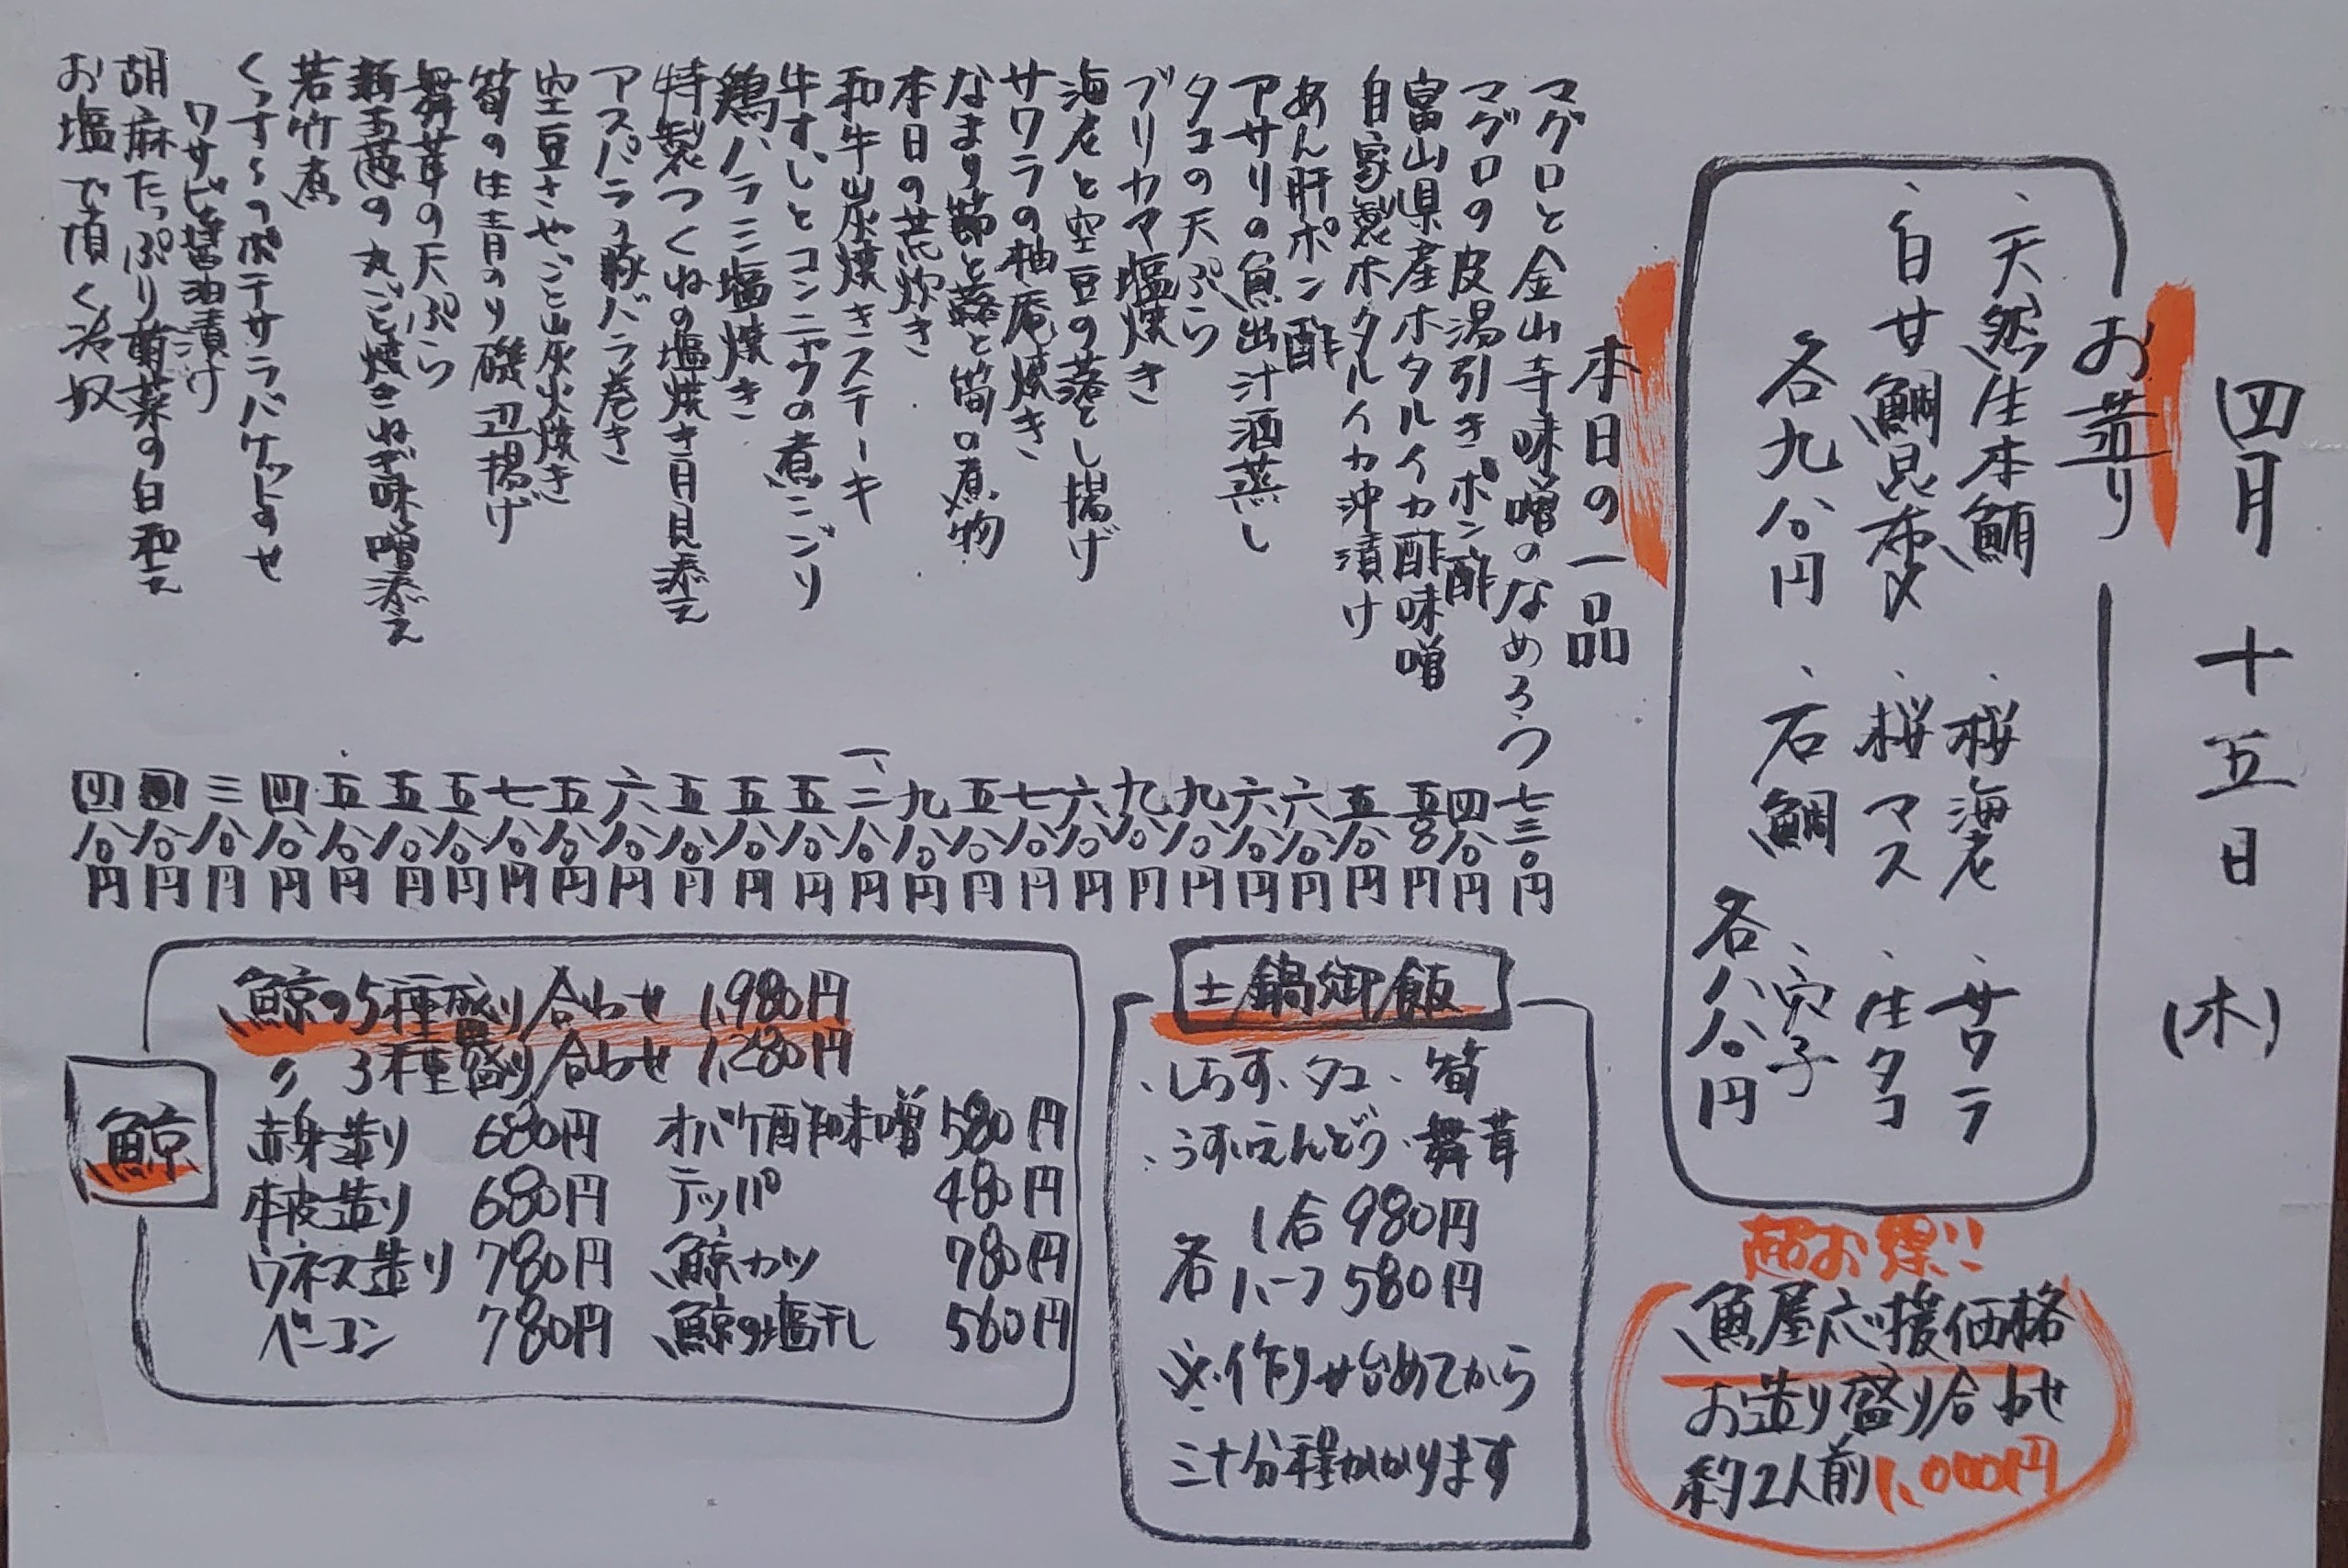 四月十五日(木)
お造り
・天然生本鮪
・白甘鯛昆布〆
各九八〇円
・桜海老
・桜マス
・石鯛
・サワラ
・生タコ
・穴子
各八八〇円
超お得!!
魚屋応援価格
お造り盛り合わせ
約2人前1,000円
本日の一品
マグロと金山寺味噌のなめろう 七三〇円
マグロの皮湯引きポン酢 四八〇円
富山県産ホタルイカ酢味噌 五八〇円
自家製ホタルイカ沖漬け 五八〇円
あん肝ポン酢 六八〇円
アサリの魚出汁酒蒸し 六八〇円
タコの天ぷら 九八〇円
ブリカマ塩焼き 九八〇円
海老と空豆の落とし揚げ 六八〇円
サワラの柚庵焼き 七八〇円
なまり節と蕗と筍の煮物 五八〇円
本日の荒炊き 九八〇円
和牛炭焼きステーキ 一、二八〇円
牛すじとコンニャクの煮こごり 五八〇円
鶏ハラミ塩焼き 五八〇円
特製つくねの塩焼き月見添え 五八〇円
アスパラの豚バラ巻き 六八〇円
空豆さやごと炭火焼き 五八〇円
筍の生青のり磯辺揚げ 七八〇円
舞茸の天ぷら 五八〇円
新玉葱の丸ごと焼きねぎ味噌添え 五八〇円
若竹煮 五八〇円
くっすんのポテサラバケットのせ 四八〇円
ワサビ醤油漬け 三八〇円
胡麻たっぷり菊菜の白和え 四八〇円
お塩で頂く冷奴 四八〇円
土鍋御飯
・しらす・タコ・筍
・うすいえんどう・舞茸
各 1合 980円
ハーフ 580円
※作り始めてから
三十分程かかります
鯨
鯨の5種盛り合わせ 1,980円
〃 3種盛り合わせ 1,280円
赤身造り 680円 オバケ酢味噌 580円
本皮造り 680円 テッパ 480円
ウネス造り 780円 鯨カツ 780円
ベーコン 780円 鯨の塩干し 560円